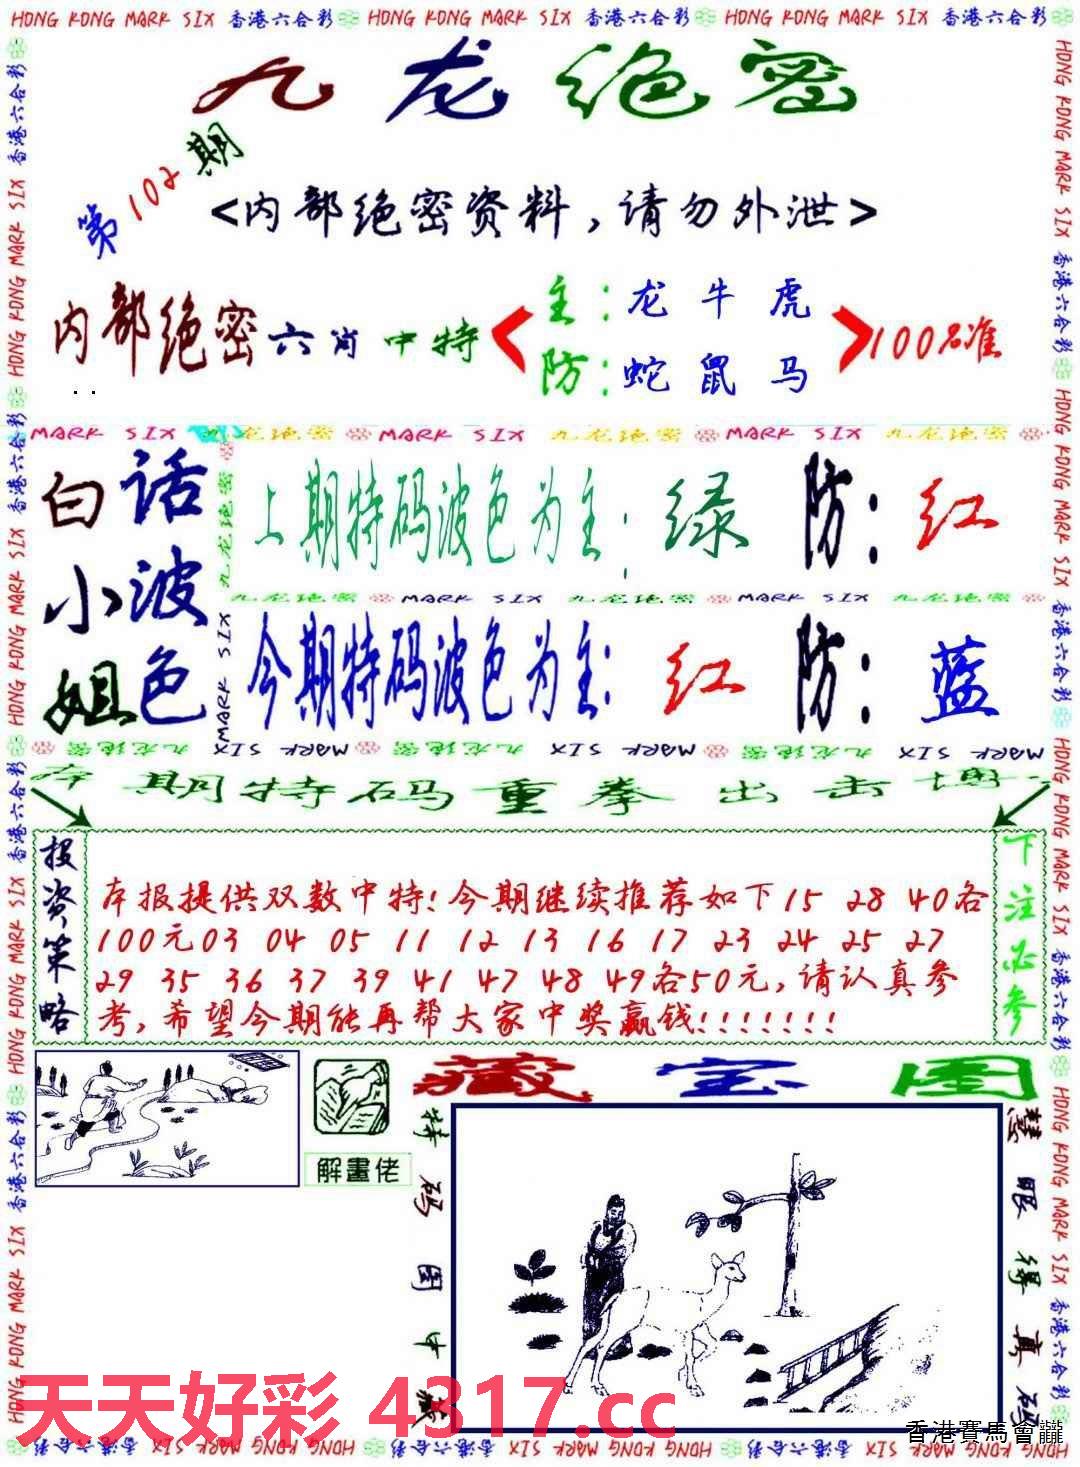 HONG KONG MARK SIX 香港六合彩 HONG KONG MARK SIX 香港六合彩 HONG KONG MARK SIX 香港六合彩
九龙绝密
第102期
<内部绝密资料，请勿外泄>
内部绝密六肖中特
主：龙 牛 虎
防：蛇 鼠 马
100%准
MARK SIX 九龙绝密 MARK SIX 九龙绝密 MARK SIX 九龙绝密
白话
小波
姐色
上期特码波色为主： 绿 防： 红
九龙绝密 MARK SIX 九龙绝密 MARK SIX 九龙绝密
今期特码波色为主： 红 防： 蓝
本期特码重拳出击
投资策略
本报提供双数中特！今期继续推荐如下15 28 40各
100元03 04 05 11 12 13 16 17 23 24 25 27
29 35 36 37 39 41 47 48 49各50元，请认真参
考，希望今期能再帮大家中奖赢钱！！！！！！！
下注必参
解畫佬
藏宝图
特码图中藏
慧眼得真码
天天好彩 4317.cc
香港賽馬會